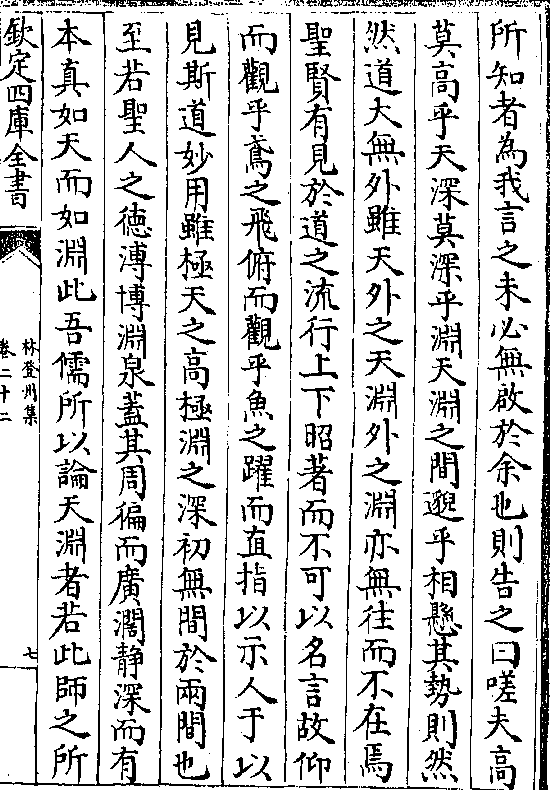 所知者為我言之未必無啟於余也則告之曰嗟夫高
莫高乎天深莫深乎淵天淵之間邈乎相懸其勢則然
然道大無外雖天外之天淵外之淵亦無往而不在焉
聖賢有見於道之流行上下昭著而不可以名言故仰
而觀乎鳶之飛俯而觀乎魚之躍而直指以示人于以
見斯道妙用雖極天之高極淵之深初無間於兩間也
至若聖人之德溥博淵泉蓋其周徧而廣濶静深而有
本真如天而如淵此吾儒所以論天淵者若此師之所
欽定四庫全書
林登州集
卷二十二
七